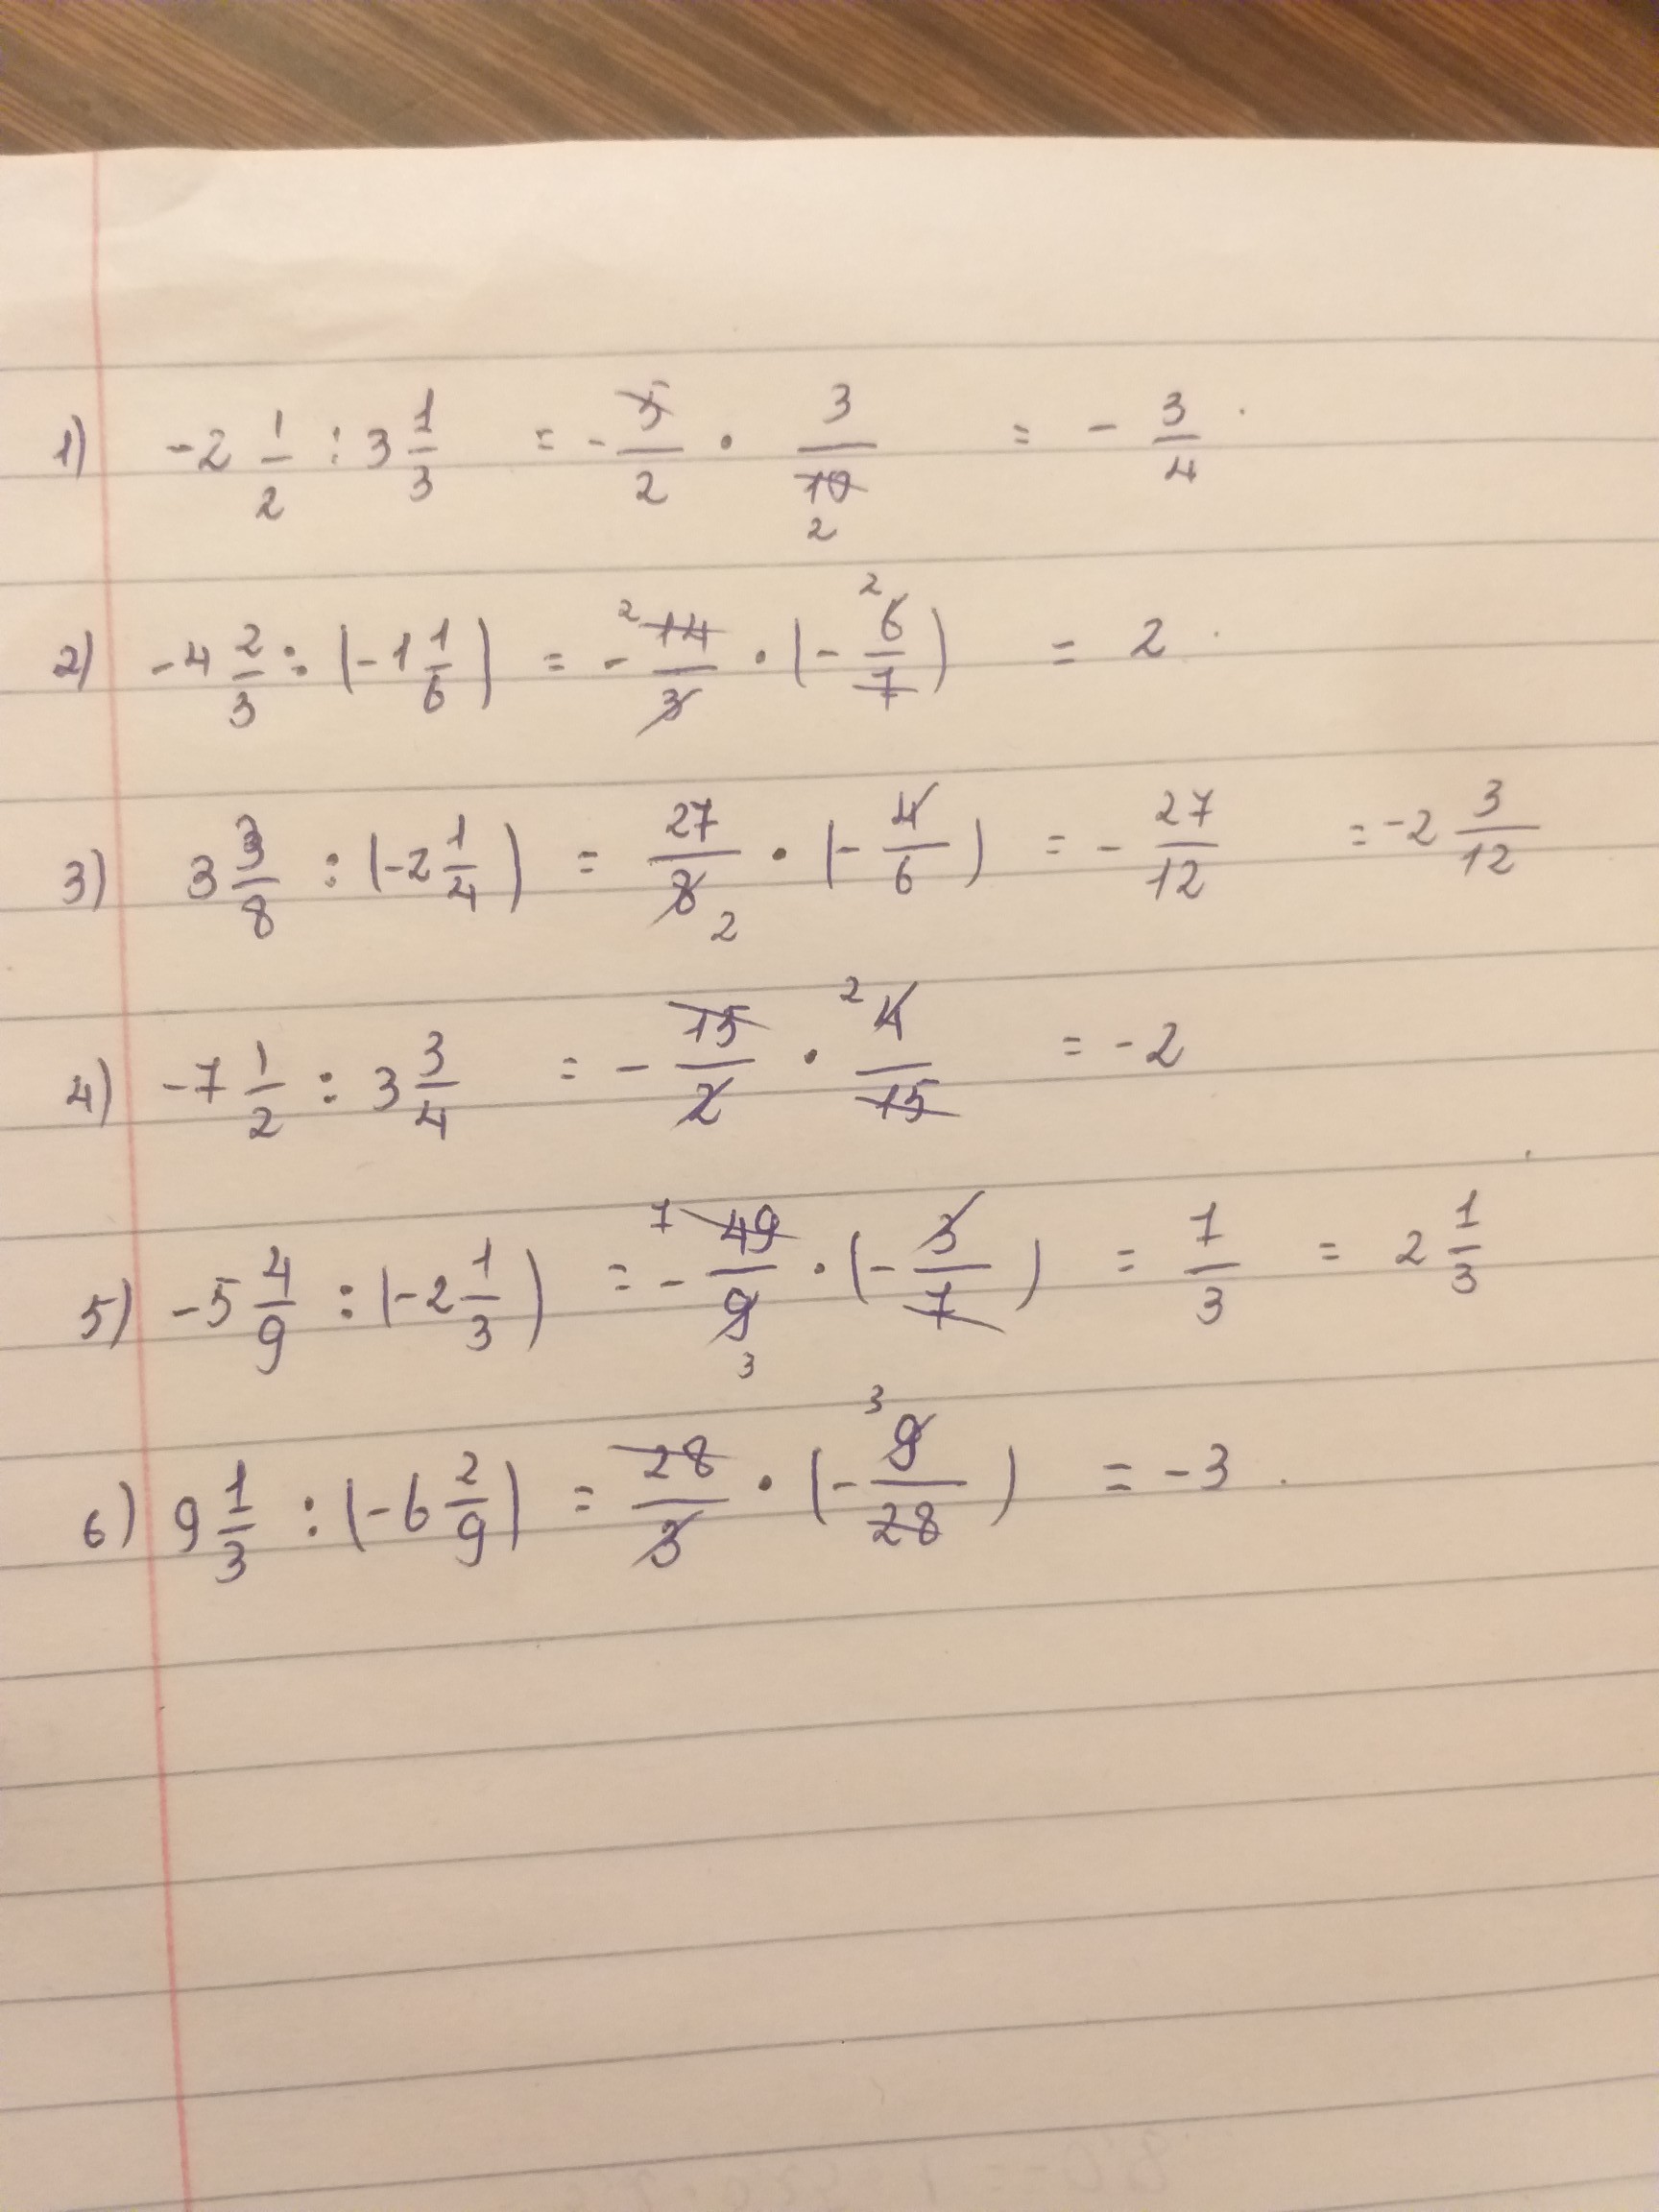 1) -2 1/2 : 3 1/3 = - 5/2 · 3/10 2 = - 3/4
2) -4 2/3 : (-1 1/6) = - 2 14/3 · (- 2 6/7) = 2
3) 3 3/8 : (-2 1/4) = 27/8 2 · (- 4/6) = - 27/12 = -2 3/12
4) -7 1/2 : 3 3/4 = - 15/2 · 2 4/15 = -2
5) -5 4/9 : (-2 1/3) = - 7 49/9 3 · (- 3/7) = 7/3 = 2 1/3
6) 9 1/3 : (-6 2/9) = 28/3 · (- 3 9/28) = -3